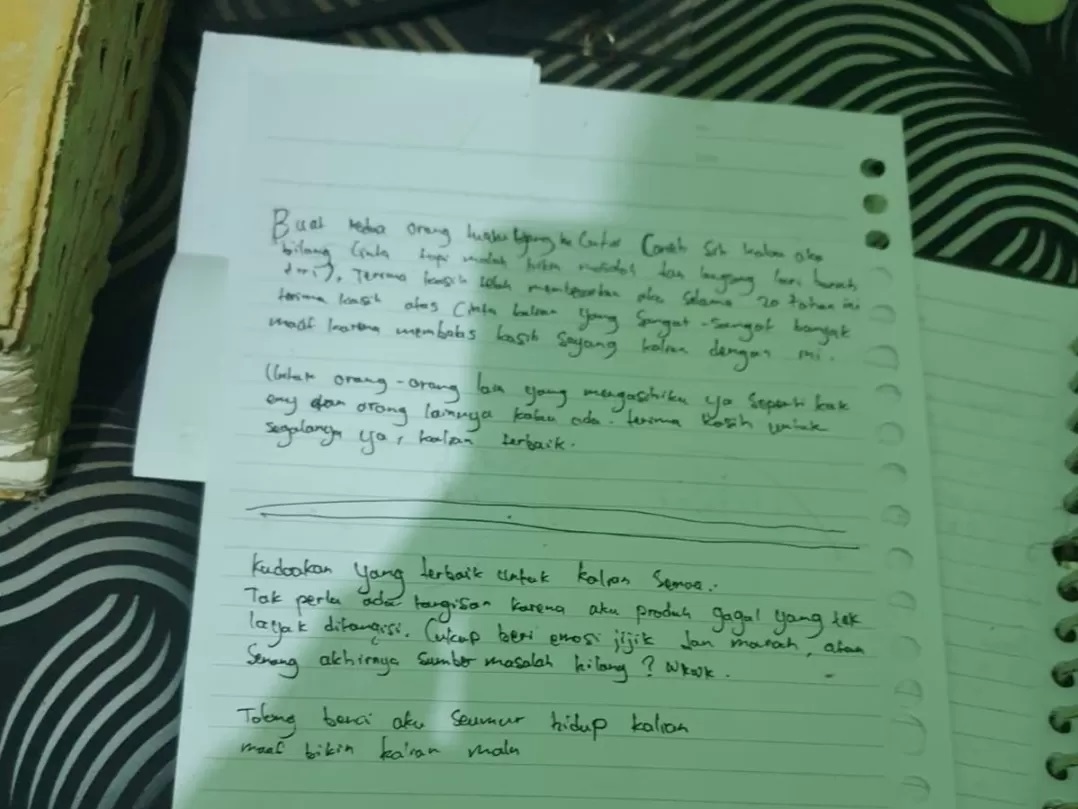 Buat kedua orang tuaku yang ku cintai (aneh sih kalau aku
bilang cinta tapi malah bikin masalah dan langsung lari bunuh
diri), Terima kasih telah membesarkan aku selama 20 tahun ini
terima kasih atas cinta kalian yang sangat-sangat banyak
maaf karena membalas kasih sayang kalian dengan ini.
Untuk orang-orang lain yang mengasihiku ya seperti kak
emy dan orang lainnya kalau ada. terima kasih untuk
segalanya ya, kalian terbaik.
kudoakan yang terbaik untuk kalian semua.
Tak perlu ada tangisan karena aku produk gagal yang tak
layak ditangisi. Cukup beri emosi jijik dan marah, atau
Senang akhirnya sumber masalah hilang? wkwk.
Tolong benci aku seumur hidup kalian
maaf bikin kalian malu